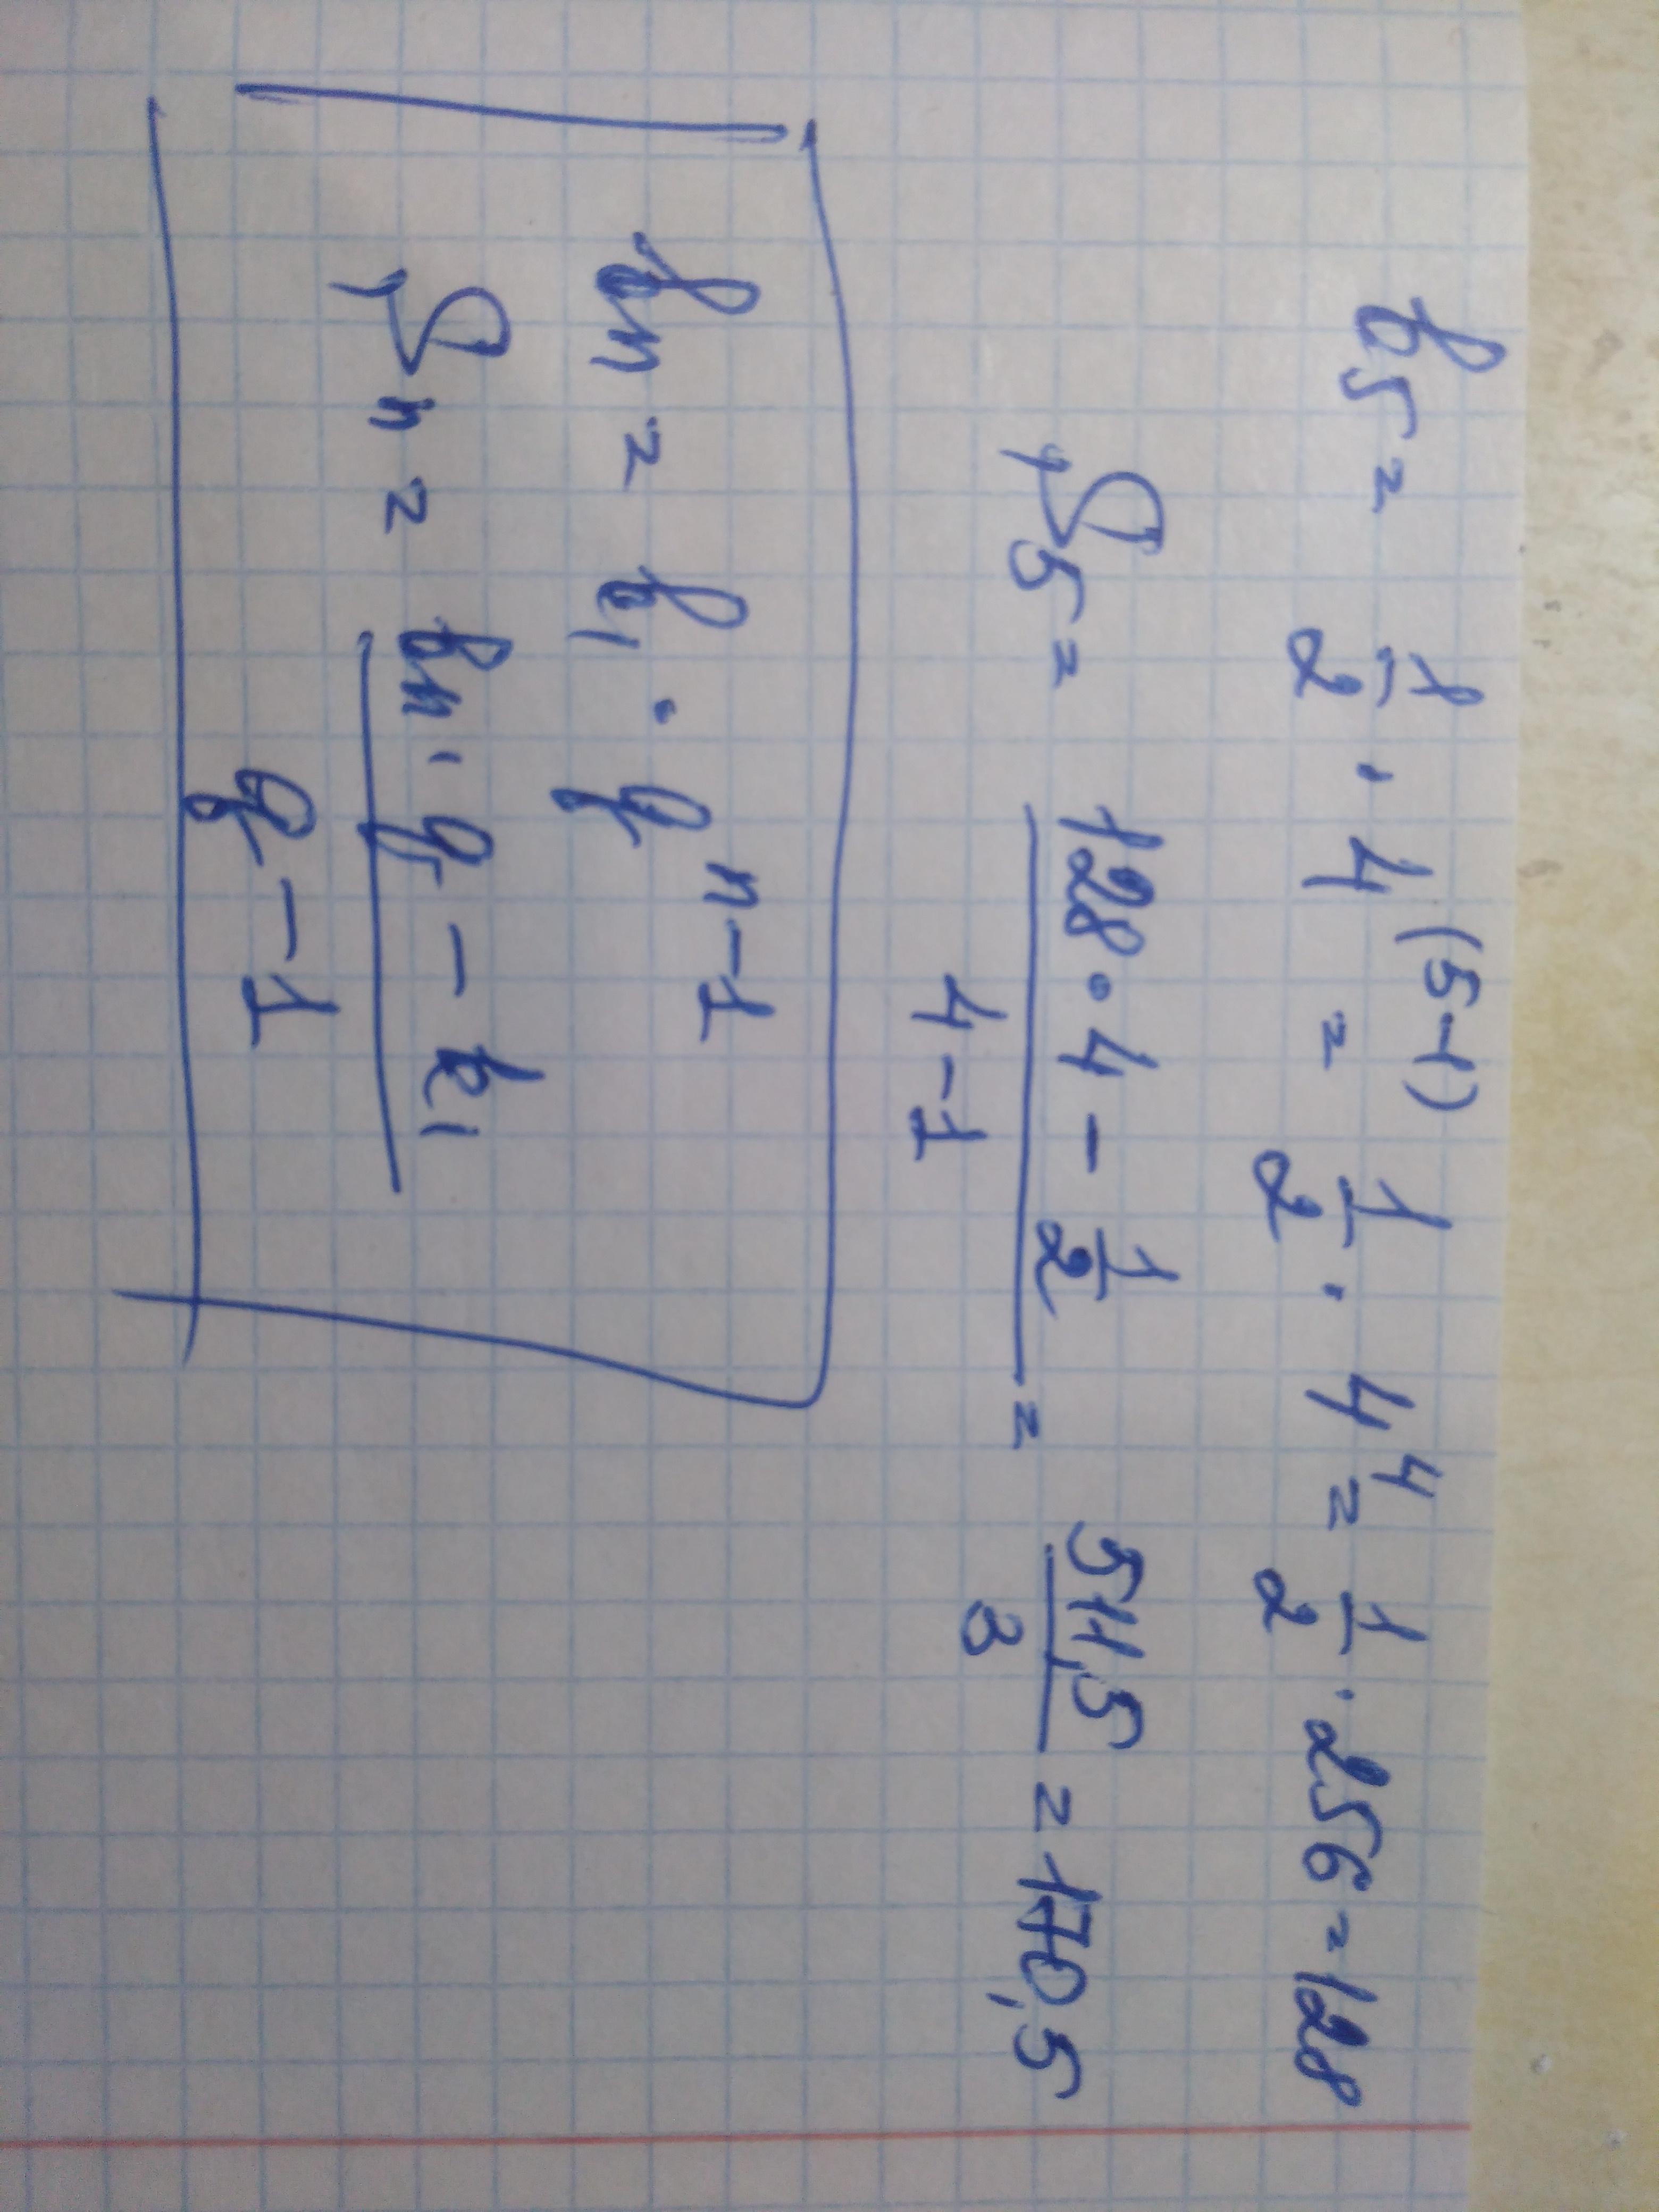 b₅ = 1/2 · 4⁽⁵⁻¹⁾ = 1/2 · 4⁴ = 1/2 · 256 = 128
S₅ = (128 · 4 − 1/2)/(4 − 1) = 511,5/3 = 170,5
bₙ = b₁ · qⁿ⁻¹
Sₙ = (bₙ · q − b₁)/(q − 1)